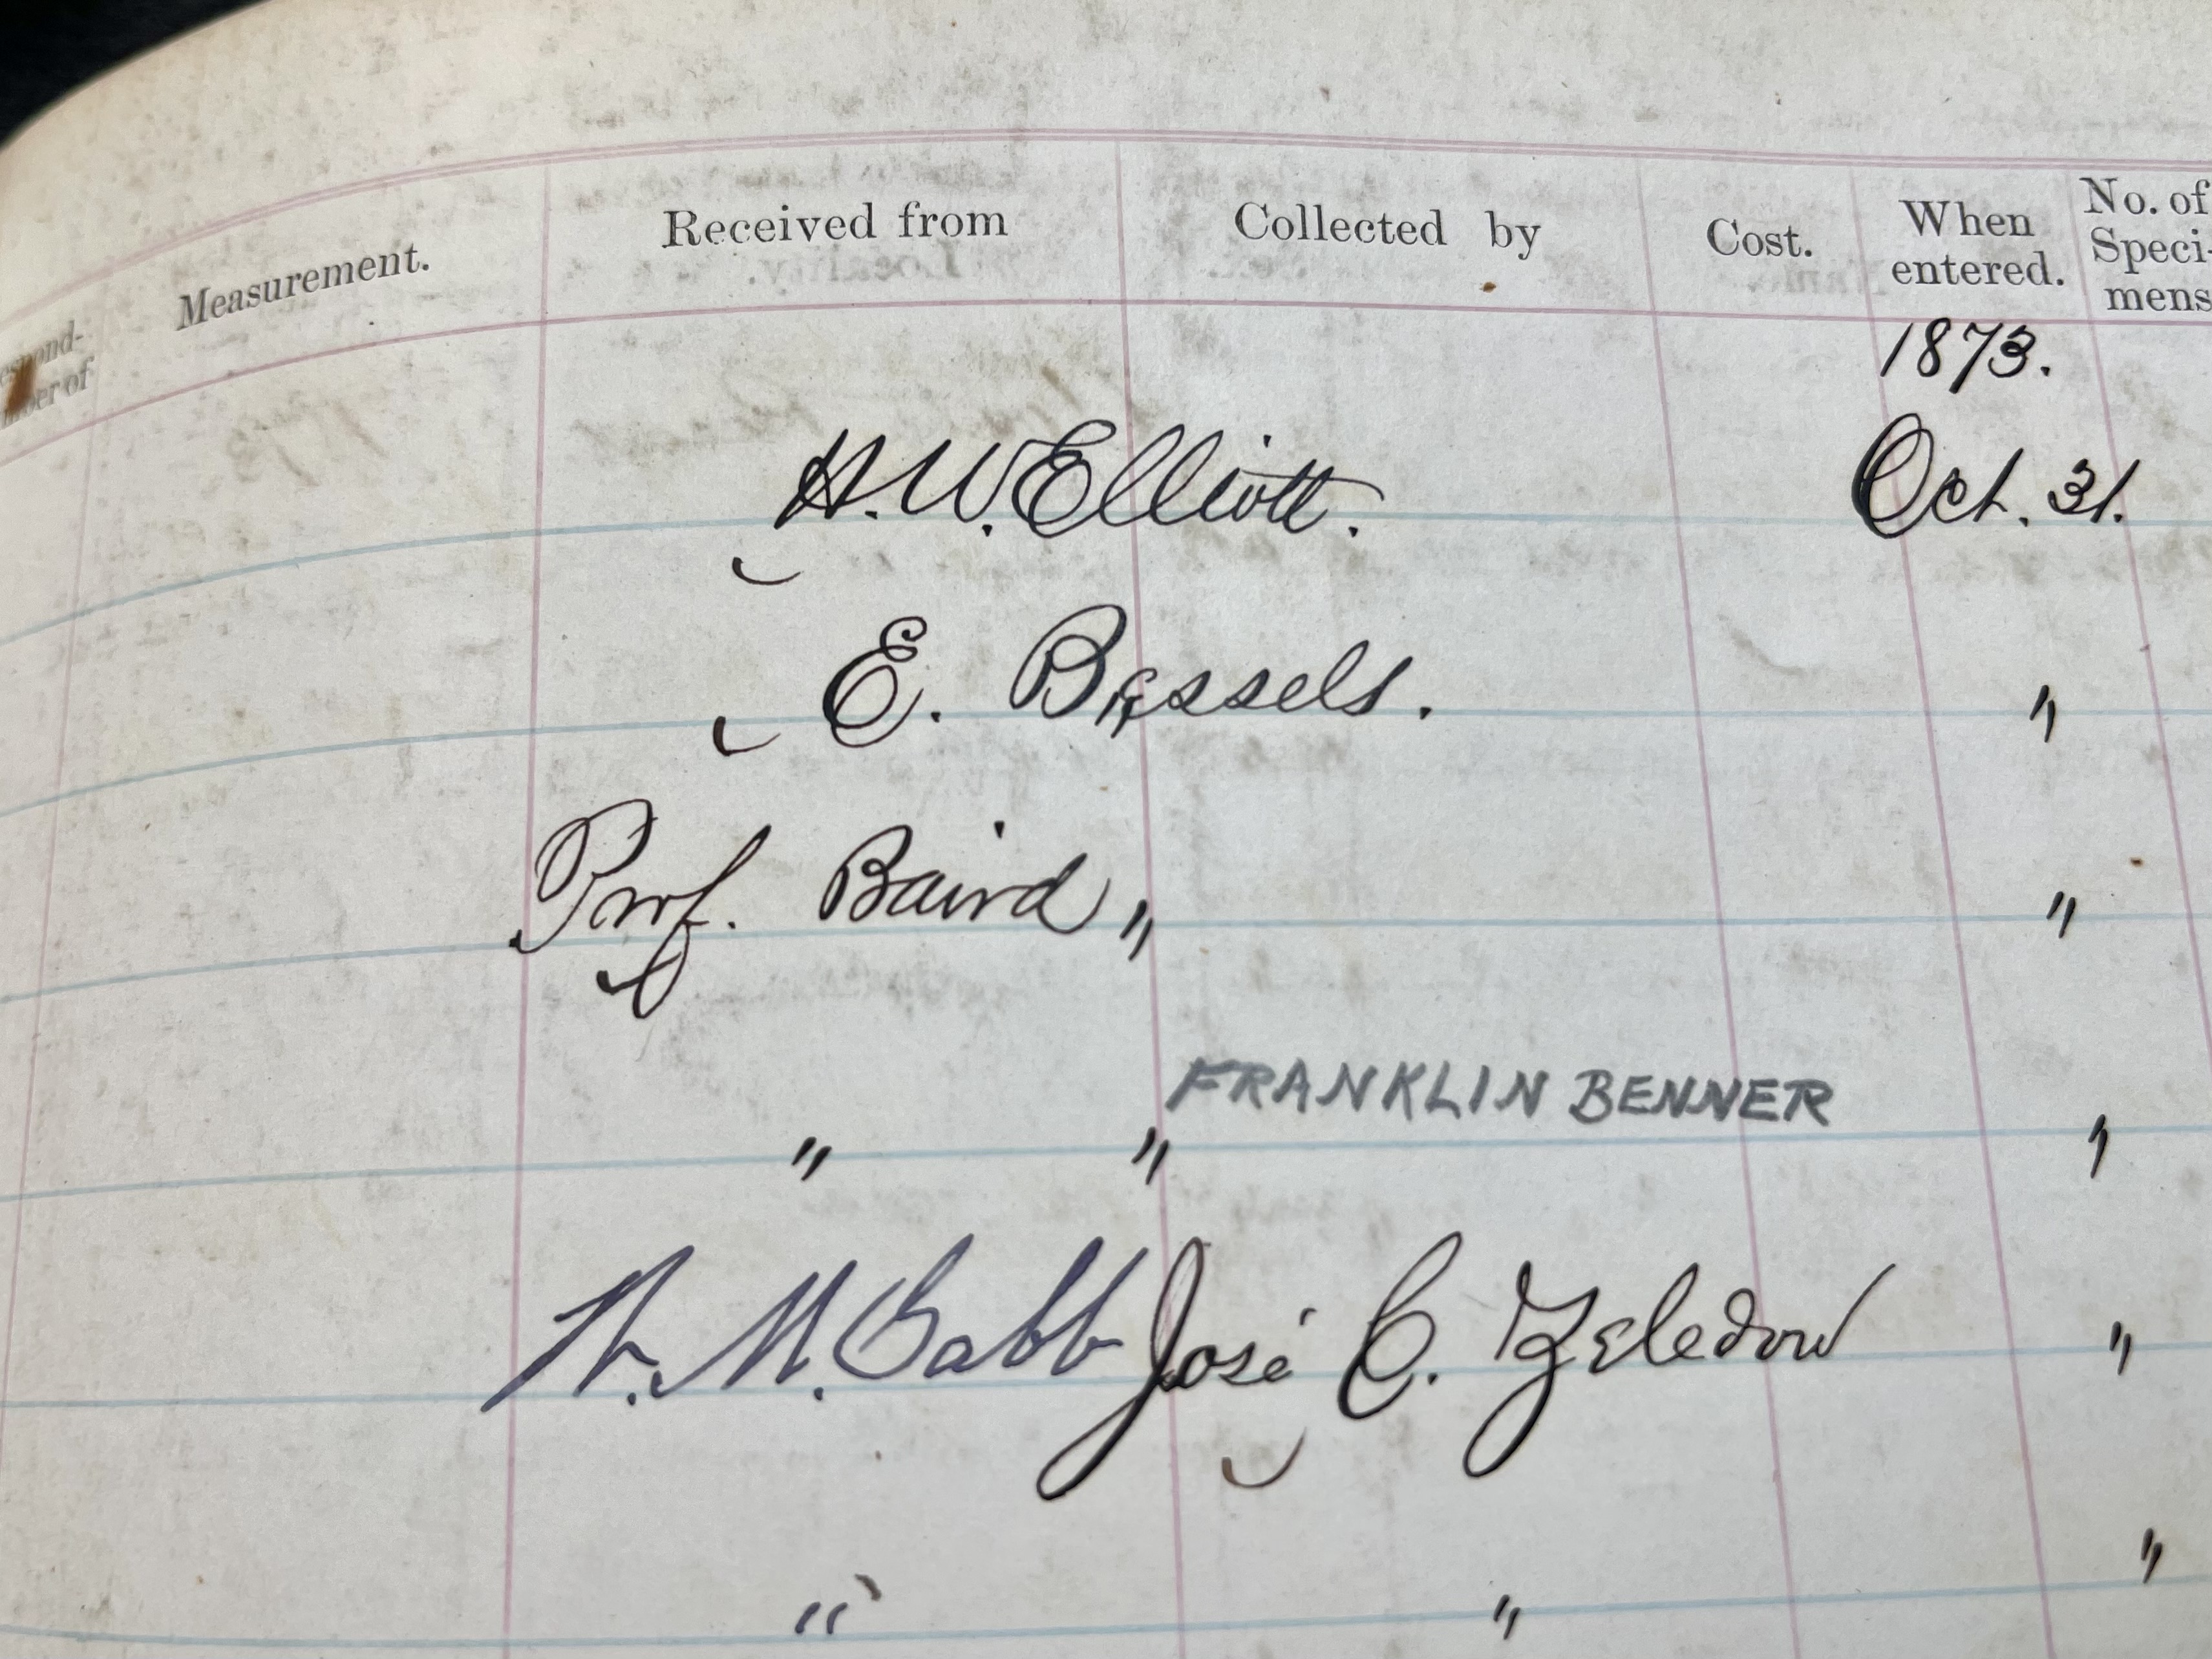 Measurement. Received from Collected by Cost. When entered. No. of Speci- mens
1873.
H. W. Elliott. Oct. 31.
E. Bessels. "
Prof. Baird " "
" " FRANKLIN BENNER "
W. M. Gabb José C. Zeledon "
" " "